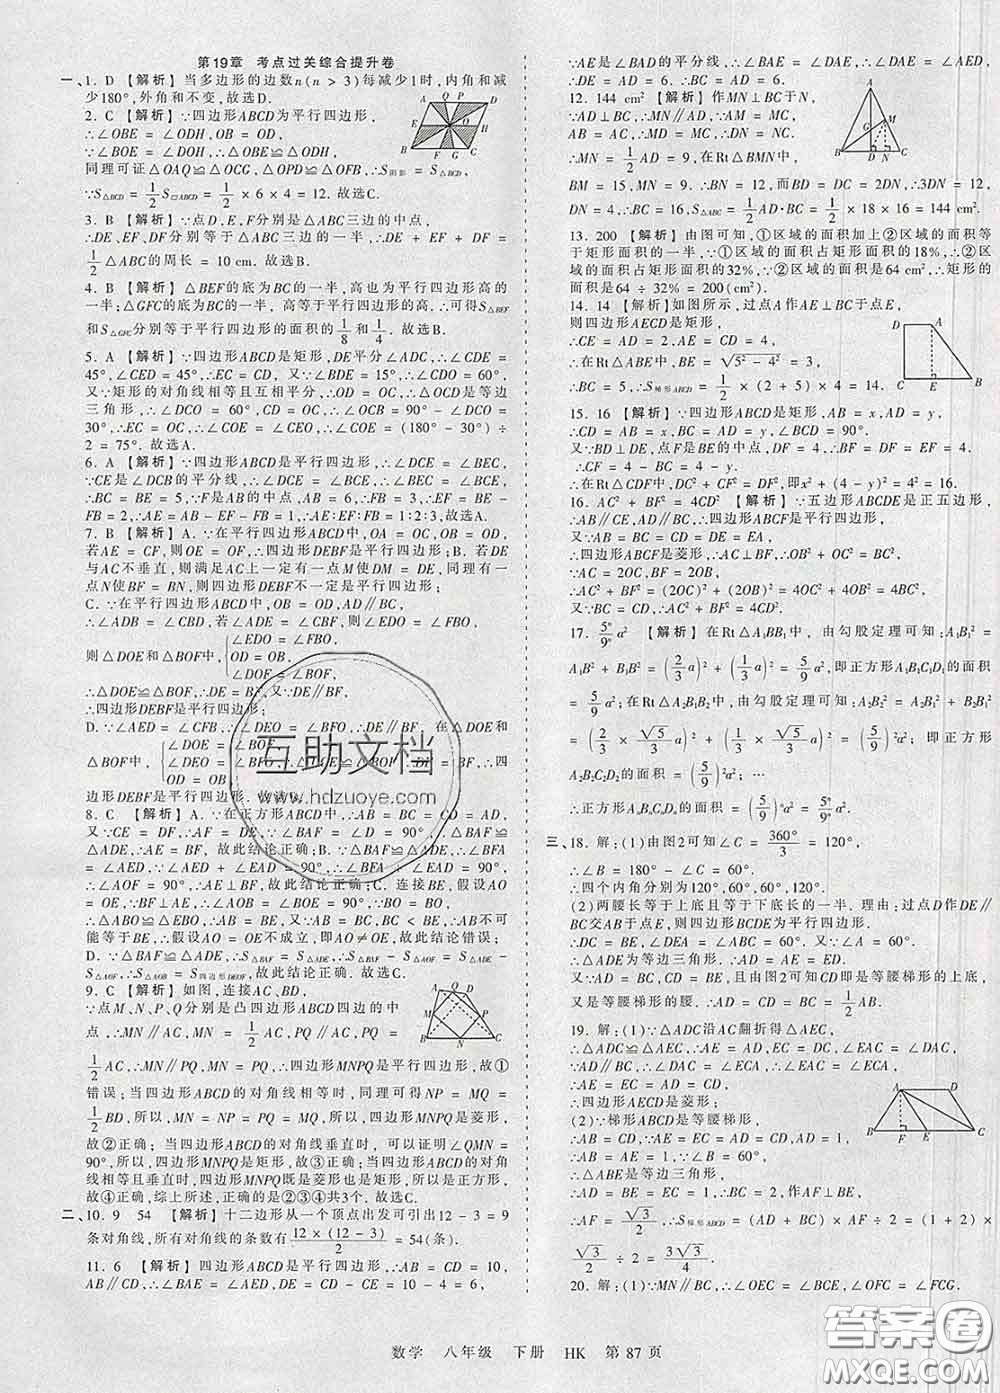 第19章 考点过关综合提升卷
一、1. D 【解析】当多边形的边数n(n > 3)每减少1时,内角和减
少180°,外角和不变,故选D.
2. C 【解析】∵四边形ABCD为平行四边形,
∴∠OBE = ∠ODH,OB = OD.
∵∠BOE = ∠DOH,∴△OBE≌△ODH.
同理可证△OAQ≌△OCG,△OPD≌△OFB.∴S阴影 = S△BCD.
∵S△BCD = 1/2 S▱ABCD = 1/2 × 6 × 4 = 12. 故选C.
3. B 【解析】∵点D、E、F分别是△ABC三边的中点,
∴DE、EF、DF分别等于△ABC三边的一半,∴DE + EF + DF =
1/2 △ABC的周长 = 10 cm. 故选B.
4. B 【解析】△BEF的底为BC的一半,高也为平行四边形高的
一半;△GFC的底为BC的一半,高等于平行四边形的高.∴可得S△BEF
和S△GFC分别等于平行四边形的面积的1/8和1/4. 故选B.
5. A 【解析】∵四边形ABCD是矩形,DE平分∠ADC,∴∠CDE =
45°,∠CED = 45°,∴EC = CD. 又∵∠BDE = 15°,∴∠CDO = 60°.
又∵矩形的对角线相等且互相平分,∴OD = OC,∴△OCD是等边
三角形,∴∠DCO = 60°,CD = OC,∴∠OCB = 90° - ∠DCO =
30°,∴EC = OC,∴∠COE = ∠CEO,∴∠COE = (180° - 30°) ÷
2 = 75°. 故选A.
6. A 【解析】∵四边形ABCD是平行四边形,∴∠DCE = ∠BEC,
∵CE是∠DCB的平分线,∴∠DCE = ∠BCE,∴∠CEB = ∠BCE,
∴BC = BE = 5,∵F是AB的中点,AB = 6,∴FB = 3,∴EF = BE -
FB = 2,∴AE = AB - EF - FB = 1,∴AE∶EF∶FB = 1∶2∶3,故选A.
7. B 【解析】A. ∵在平行四边形ABCD中,OA = OC,OB = OD,
若AE = CF,则OE = OF,∴四边形DEBF是平行四边形;B. 若DE
与AC不垂直,则满足AC上一定有一点M使DM = DE,同理有一
点N使BF = BN,则四边形DEBF不一定是平行四边形;
C. ∵在平行四边形ABCD中,OB = OD,AD∥BC,
∴∠ADB = ∠CBD,若∠ADE = ∠CBF,则∠EDO = ∠FBO,
则△DOE和△BOF中,{∠EDO = ∠FBO, OD = OB, ∠DOE = ∠BOF,
∴△DOE≌△BOF,∴DE = BF,又∵DE∥BF,
∴四边形DEBF是平行四边形;
D. ∵∠AED = ∠CFB,∴∠DEO = ∠BFO,∴DE∥BF,在△DOE和
△BOF中,{∠DOE = ∠BOF, ∠DEO = ∠BFO, OD = OB, ∴△DOE≌△BOF,∴DE = BF,∴四
边形DEBF是平行四边形. 故选B.
8. C 【解析】A. ∵在正方形ABCD中,AB = BC = CD = AD,
又∵CE = DF,∴AF = DE,∵∠D = ∠BAF = 90°,∴△BAF≌
△ADE,∴AE = BF,故此结论正确;B. ∵△BAF≌△ADE,
∴∠BFA = ∠AED,∵∠AED + ∠EAD = 90°,∴∠BFA + ∠EAD =
90°,∴∠AOF = 90°,∴AE⊥BF,故此结论正确;C. 连接BE,假设
AO = OE,∵BF⊥AE,∴∠AOB = ∠BOE = 90°,∵BO = BO,
∴△ABO≌△EBO,∴AB = BE,又∵AB = BC,BC < BE,∴AB不可
能等于BE,∴假设AO = OE不成立,即AO ≠ OE,故此结论错误;
D. ∵△BAF≌△ADE,∴S△BAF = S△ADE,∴S△BAF - S△AOF = S△ADE -
S△AOF,∴S△AOB = S四边形DEOF,故此结论正确. 故选C.
9. C 【解析】如图,连接AC、BD,
∵点M、N、P、Q分别是凸四边形ABCD四边的中
点,∴MN∥AC,MN = 1/2 AC,PQ∥AC,PQ =
1/2 AC,∴MN∥PQ,MN = PQ,∴四边形MNPQ是平行四边形,故①
错误;当四边形ABCD的对角线相等时,同理可得,MQ = NP =
1/2 BD,所以,MN = NP = PQ = MQ,所以,四边形MNPQ是菱形,
故②正确;当四边形ABCD的对角线垂直时,可以证明∠QMN =
90°,所以,四边形MNPQ是矩形,故③正确;当四边形ABCD的对角
线相等且垂直时,四边形MNPQ既是菱形也是矩形,所以是正方形,
故④正确,综上所述,正确的是②③④共3个. 故选C.
二、10. 9 54 【解析】十二边形从一个顶点出发可引出12 - 3 = 9
条对角线,所有对角线的条数有 12 × (12 - 3)/2 = 54(条).
11. 6 【解析】四边形ABCD是平行四边形,∴AB = CD = 10,
AB∥CD,∴∠BAE = ∠AED,DE = CD - CE = 10 - 4 = 6,
∵AE是∠BAD的平分线,∴∠BAE = ∠DAE,∴∠DAE = ∠AED,
∴AD = DE = 6.
12. 144 cm² 【解析】作MN⊥BC于N,
∵AD⊥BC,∴MN∥AD,∵AM = MC,
AB = AC,∴DN = NC,BD = DC,
∴MN = 1/2 AD = 9,在Rt△BMN中,
BM = 15,MN = 9,∴BN = 12,而BD = DC = 2DN,∴3DN = 12,
DN = 4,∴BC = 16,S△ABC = 1/2 AD·BC = 1/2 × 18 × 16 = 144 cm².
13. 200 【解析】由图可知,①区域的面积加上②区域的面积等
于矩形面积的一半,∵①区域的面积占矩形面积的18%,∴②区
域的面积占矩形面积的32%,∵②区域的面积是64 cm²,∴矩形的
面积是64 ÷ 32% = 200(cm²).
14. 14 【解析】如图所示,过点A作AE⊥BC于点E,
则四边形AECD是矩形,
∴CE = AD = 2,AE = CD = 4,
∴在Rt△ABE中,BE = √(5² - 4²) = 3,
∴BC = 5,∴S梯形ABCD = 1/2 × (2 + 5) × 4 = 14.
15. 16 【解析】∵四边形ABCD是矩形,AB = x,AD = y,
∴CD = AB = x,BC = AD = y,∠BCD = 90°.
又∵BD⊥DE,点F是BE的中点,DF = 4,∴BF = DF = EF = 4.
∴CF = 4 - BC = 4 - y.
∴在Rt△DCF中,DC² + CF² = DF²,即x² + (4 - y)² = 4² = 16.
16. AC² + BF² = 4CD² 【解析】∵五边形ABCDE是正五边形,
∴AB∥CE,AD∥BC,∴四边形ABCF是平行四边形,
又∵AB = BC = CD = DE = EA,
∴四边形ABCF是菱形,∴AC⊥BF,∴OB² + OC² = BC²,
∵AC = 2OC,BF = 2OB,
∴AC² + BF² = (2OC)² + (2OB)² = 4OC² + 4OB² = 4BC²,
又∵BC = CD,∴AC² + BF² = 4CD².
17. 5ⁿ/9ⁿ a² 【解析】在Rt△A₁BB₁中,由勾股定理可知:A₁B₁² =
A₁B² + B₁B² = (2/3 a)² + (1/3 a)² = 5/9 a²,即正方形A₁B₁C₁D₁的面积
= 5/9 a²;在Rt△A₂B₁B₂中,由勾股定理可知:A₂B₂² = A₂B₁² + B₂B₁²
= (2/3 × √5/3 a)² + (1/3 × √5/3 a)² = (5/9)² a²,即正方形
A₂B₂C₂D₂的面积 = (5/9)² a²;…
∴正方形AₙBₙCₙDₙ的面积 = (5/9)ⁿ a² = 5ⁿ/9ⁿ a².
三、18. 解:(1)由图2可知∠C = 360°/3 = 120°,
∴∠B = 180° - ∠C = 60°.
∴四个内角分别为120°,60°,60°,120°.
(2)两腰长等于上底且等于下底长的一半. 理由:过点D作DE∥
BC交AB于点E,则四边形BCDE为平行四边形.
∴DC = BE,∠DEA = ∠CBA = 60°. 又∵∠A = 60°.
∴△ADE为等边三角形.∴AD = DE = AE.
又∵AD = BC,CD = BE,且由图2可知CD即是等腰梯形的上底,
又是等腰梯形的腰.∴AD = DC = BC = 1/2 AB.
19. 解:(1)∵△ADC沿AC翻折得△AEC,
∴△ADC≌△AEC,∴AE = AD,∠EAC = ∠DAC,
∵AD∥BC,∴∠DAC = ∠ECA,∴∠EAC = ∠ECA,
∴AE = EC,∴EC = AD,
∴四边形AECD是菱形;
(2)∵梯形ABCD是等腰梯形,
∴AB = CD,∵CD = AE = AD = BE,
∴AB = AE = BE,
∴△ABE是等边三角形,
∵AF⊥BC,∴BF = 1/2 BE = 1/2,
∴AF = √3/2,∴S梯形ABCD = (AD + BC) × AF ÷ 2 = (1 + 2) ×
√3/2 ÷ 2 = 3√3/4.
20. 解:(1)∵MN∥BC,∴∠OEC = ∠BCE,∠OFC = ∠FCG.
数学 八年级 下册 HK 第 87 页
互助文档
www.hdzuoye.com
答案圈
MXQE.COM